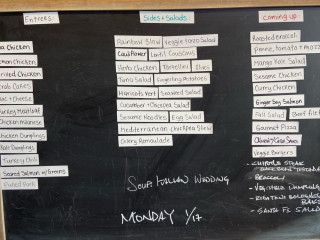 Entrees:
Chicken
Chicken
Chicken
Cakes
Cheese
Turkey Meatloaf
Chicken Milanese
Chicken Dumplings
Dumplings
Turkey Chili
Seared Salmon w/ Greens
Pulled Pork
Sides + Salads
Rainbow Slaw Veggie Pasta Salad
Cauliflower Lentil Couscous
Pesto Chicken Tortellini Slaws
Tuna Salad Fingerling Potatoes
Haricots Verts Seaweed Salad
Cucumber + Chickpea Salad
Sesame Noodles Egg Salad
Mediterranean Chickpea Stew
Celery Remoulade
SOUP: ITALIAN WEDDING
MONDAY 1/17
Coming up:
Roasted Broccoli
Penne, tomato + mozz
Mango Kale Salad
Sesame Chicken
Curry Chicken
Ginger Soy Salmon
Fall Salad
Gourmet Pizza
Veggie Burgers
- CHIPOTLE STEAK
BROCCOLI
- VEGETABLE DUMPLING
- RIGATONI BOLOGNESE
BAKE
- SANTA FE SALAD